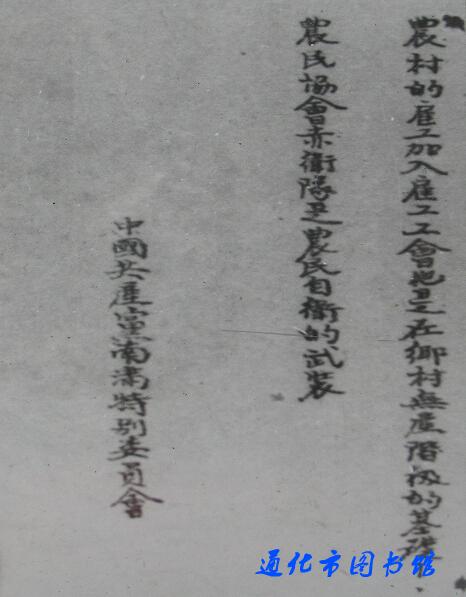 農村的雇工加入雇工工會他是在鄉村無產階級的基礎
農民協會赤衛隊是農民自衛的武裝
中國共產黨南滿特別委員會
通化市图书馆